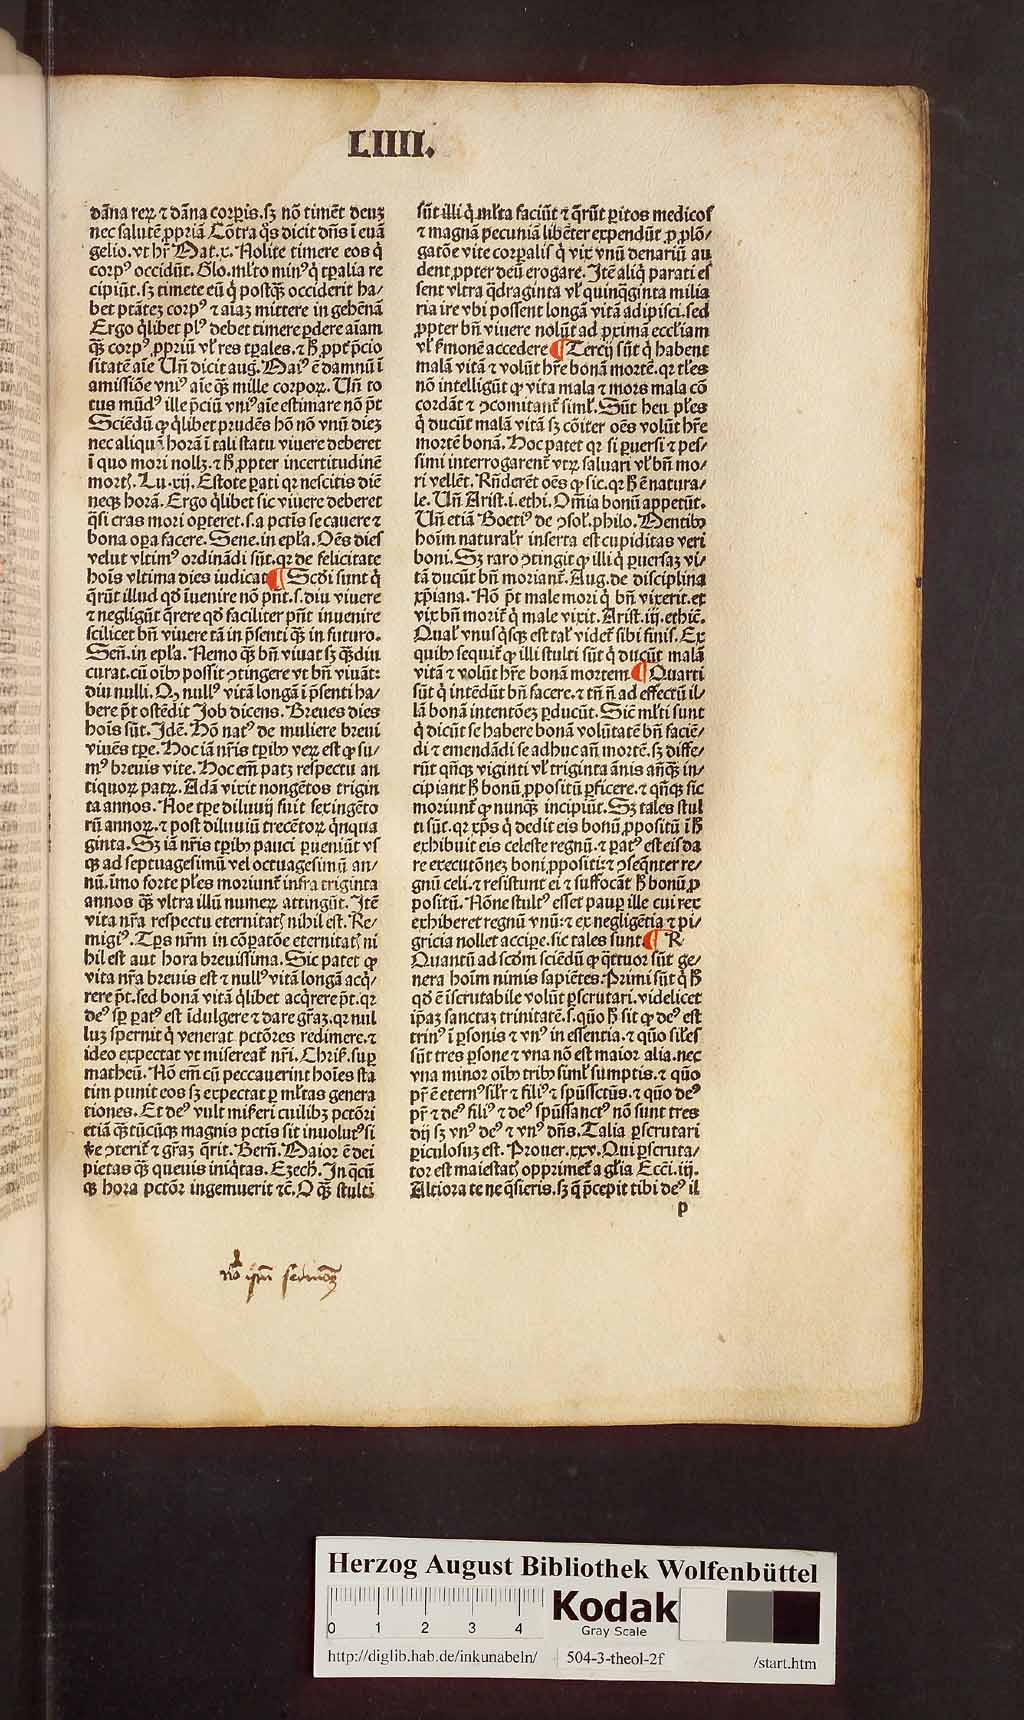 LIIII.
dāna reꝝ ⁊ dāna corꝑis. sꝫ nō timēt deuꝫ
nec salutē ꝓpriā Cōtra qͦs dicit dn̄s ī euā
gelio. vt hr̄ Mat. x. Nolite timere eos qͥ
corpꝰ occidūt. Glo. ml̄to minꝰ qͥ tꝑalia re
cipiūt. sꝫ timete eū qͥ postqꝫ̄ occiderit ha/
bet ptāteꝫ corpꝰ ⁊ aīaꝫ mittere in gehēnā
Ergo qͥlibet plꝰ debet timere ꝑdere aīam
qꝫ̄ corpꝰ ꝓpriū vl̓ res tꝑales. ⁊ ꝑ ꝓpt̓ p̄cio
sitatē aīe Un̄ dicit aug̓. Maiꝰ ē damnū ī
amissiōe vniꝰ aīe qꝫ̄ mille corpoꝝ. Un̄ to
tus mūdꝰ ille p̄ciū vniꝰ aīe estimare nō pn̄t
Sciēdū ꝙ qͥlibet prudēs hō nō vnū dieꝫ
nec aliquā horā ī tali statu viuere deberet
ī quo mori nollꝫ. ⁊ ħ ꝓpter incertitudinē
mortꝭ. Lu. xij. Estote ꝑati qꝛ nescitis diē
neqꝫ horā. Ergo qͥlibet sic viuere deberet
qͣsi cras mori oꝑteret. s. a pctīs se cauere ⁊
bona oꝑa facere. Sene. in epl̓a. Oēs dies
velut vltimꝰ ordinādi sūt. qꝛ de felicitate
hoīs vltima dies iudicat ¶ Scd̓i sunt qͥ
qͣrūt illud qd̓ īuenire nō pn̄t. s. diu viuere
⁊ negligūt qͣrere qd̓ faciliter pn̄t inuenire
scilicet bn̄ viuere tā in p̄senti qꝫ̄ in futuro.
Sen̄. in epl̓a. Nemo qꝫ̄ bn̄ viuat sꝫ qꝫ̄diu
curat. cū oībꝫ possit ꝯtingere vt bn̄ viuāt:
diu nulli. Qꝙ nullꝰ vitā longā ī p̄senti ha/
bere pt̄ ostēdit Job dicens. Breues dies
hoīs sūt. Idē. Hō natꝰ de muliere breui
viuēs tꝑe. Hoc iā nr̄is tꝑibꝫ veꝝ est ꝙ su/
mꝰ breuis vite. Hoc em̄ patꝫ respectu an
tiquoꝝ patꝝ. Adā vixit nongētos trigin
ta annos. Noe tꝑe diluuij fuit sexingēto
rū annoꝝ. ⁊ post diluuiū trecētoꝝ qͥnqua
ginta. Sꝫ iā nr̄is tꝑibꝫ pauci ꝑueniūt vs
qꝫ ad septuagesimū vel octuagesimū an/
nū. īmo forte pl̓es moriunt̓ infra triginta
annos qꝫ̄ vltra illū numeꝝ attingūt. Itē
vita nr̄a respectu eternitatꝭ nihil est. Re/
migiꝰ. Tꝑs nr̄m in cōꝑatōe eternitatꝭ ni
hil est aut hora breuissima. Sic patet ꝙ
vita nr̄a breuis est ⁊ nullꝰ vitā longā acqͥ/
rere pt̄. sed bonā vitā qͥlibet acqͥrere pt̄. qꝛ
deꝰ sꝑ ꝑatꝰ est īdulgere ⁊ dare gr̄aꝫ. qꝛ nul
luꝫ spernit qͥ venerat pctōres redimere. ⁊
ideo expectat vt misereat̓ nr̄i. Chris̓. suꝑ
matheū. Nō em̄ cū peccauerint hoīes sta
tim punit eos sꝫ expectat ꝑ ml̄tas genera
tiones. Et deꝰ vult mis̓eri cuilibꝫ pctōri
etiā qꝫ̄tūcūqꝫ magnis pctīs sit inuolutꝰ si
se ꝯterit̓ ⁊ gr̄aꝫ qͣrit. Bern̄. Maior ē dei
pietas qꝫ̄ queuis iniqͥtas. Ezech̓. In qͣcū
qꝫ hora pctōr ingemuerit ⁊c̄. O qꝫ̄ stulti
sūt illi qͥ ml̄ta faciūt ⁊ qͣrūt ꝑitos medicos
⁊ magnā pecuniā libēter expendūt ꝓ ꝓlō/
gatōe vite corꝑalis qͥ vix vnū denariū au
dent ꝓpter deū erogare. Itē aliqͥ parati es
sent vltra qͣdraginta vl̓ quinqͣginta milia
ria ire vbi possent longā vitā adipisci. sed
ꝓpter bn̄ viuere nolūt ad ꝓximā eccl̓iam
vl̓ s̓monē accedere ¶ Tercij sūt qͥ habent
malā vitā ⁊ volūt hr̄e bonā mortē. qꝛ tl̓es
nō intelligūt ꝙ vita mala ⁊ mors mala cō
cordāt ⁊ ꝯcomitant̓ siml̓. Sūt heu pl̓es
qͥ ducūt malā vitā sꝫ cōiter oēs volūt hr̄e
mortē bonā. Hoc patet qꝛ si ꝑuersi ⁊ pes/
simi interrogarent̓ vtꝝ saluari vl̓ bn̄ mo/
ri vellēt. Rn̄derēt oēs ꝙ sic. qꝛ ħ ē natura/
le. Un̄ Arist̓. i. ethi. Om̄ia bonū appetūt.
Un̄ etiā Boetiꝰ de ꝯsol̓. philo. Mentibꝫ
hoīm natural̓r inserta est cupiditas veri
boni. Sꝫ raro ꝯtingit ꝙ illi qͥ ꝑuersaꝫ vi/
tā ducūt bn̄ moriant̓. Aug. de disciplina
xp̄iana. Nō pt̄ male mori qͥ bn̄ vixerit. et
vix bn̄ morit̓ qͥ male vixit. Arist̓. iij. ethic̄.
Qual̓ vnusqͥsqꝫ est tal̓ videt̓ sibi finis. Ex
quibꝫ sequit̓ ꝙ illi stulti sūt qͥ ducūt malā
vitā ⁊ volūt hr̄e bonā mortem ¶ Quarti
sūt qͥ intēdūt bn̄ facere. ⁊ tn̄ n̄ ad effectū il/
lā bonā intentōeꝫ ꝑducūt. Sic̄ ml̄ti sunt
qͥ dicūt se habere bonā volūtatē bn̄ faciē/
di ⁊ emendādi se adhuc an̄ mortē. sꝫ diffe/
rūt qn̄qꝫ viginti vl̓ triginta ānis an̄qꝫ̄ in/
cipiant ħ bonū ꝓpositū ꝑficere. ⁊ qn̄qꝫ sic
moriunt̓ ꝙ nunqꝫ̄ incipiūt. Sꝫ tales stul
ti sūt. qꝛ xp̄s qͥ dedit eis bonū ꝓpositū ī ħ
exhibuit eis celeste regnū. ⁊ ꝑatꝰ est eis da
re executōneꝫ boni ꝓpositi: ⁊ ꝯseqn̄ter re/
gnū celi. ⁊ resistunt ei ⁊ suffocāt ħ bonū ꝓ
positū. Nōne stultꝰ esset pauꝑ ille cui rex
exhiberet regnū vnū: ⁊ ex negligētia ⁊ pi/
gricia nollet accipe. sic tales sunt ¶ R
Quantū ad scd̓m sciēdū ꝙ qͣttuor sūt ge/
nera hoīm nimis sapiētes. Primi sūt qͥ ħ
qd̓ ē īscrutabile volūt ꝑscrutari. videlicet
ip̄aꝫ sanctaꝫ trinitatē. s. qūo ħ sit ꝙ deꝰ est
trinꝰ ī ꝑsonis ⁊ vnꝰ in essentia. ⁊ qūo sil̓es
sūt tres ꝑsone ⁊ vna nō est maior alia. nec
vna minor oībꝫ tribꝫ siml̓ sumptis. ⁊ qūo
pr̄ ē eternꝰ sil̓r ⁊ filiꝰ ⁊ spūssctūs. ⁊ qūo deꝰ
pr̄ ⁊ deꝰ filiꝰ ⁊ deꝰ spūssanctꝰ nō sunt tres
dij sꝫ vnꝰ deꝰ ⁊ vnꝰ dn̄s. Talia ꝑscrutari
ꝑiculosuꝫ est. Prouer. xxv. Qui ꝑscruta/
tor est maiestatꝭ opprimet̓ a gl̓ia Ecci. iij.
Altiora te ne qͣsieris. sꝫ qͣ p̄cepit tibi deꝰ il
p
Herzog August Bibliothek Wolfenbüttel
0 1 2 3 4
Kodak
Gray Scale
http://diglib.hab.de/inkunabeln/ 504-3-theol-2f /start.htm